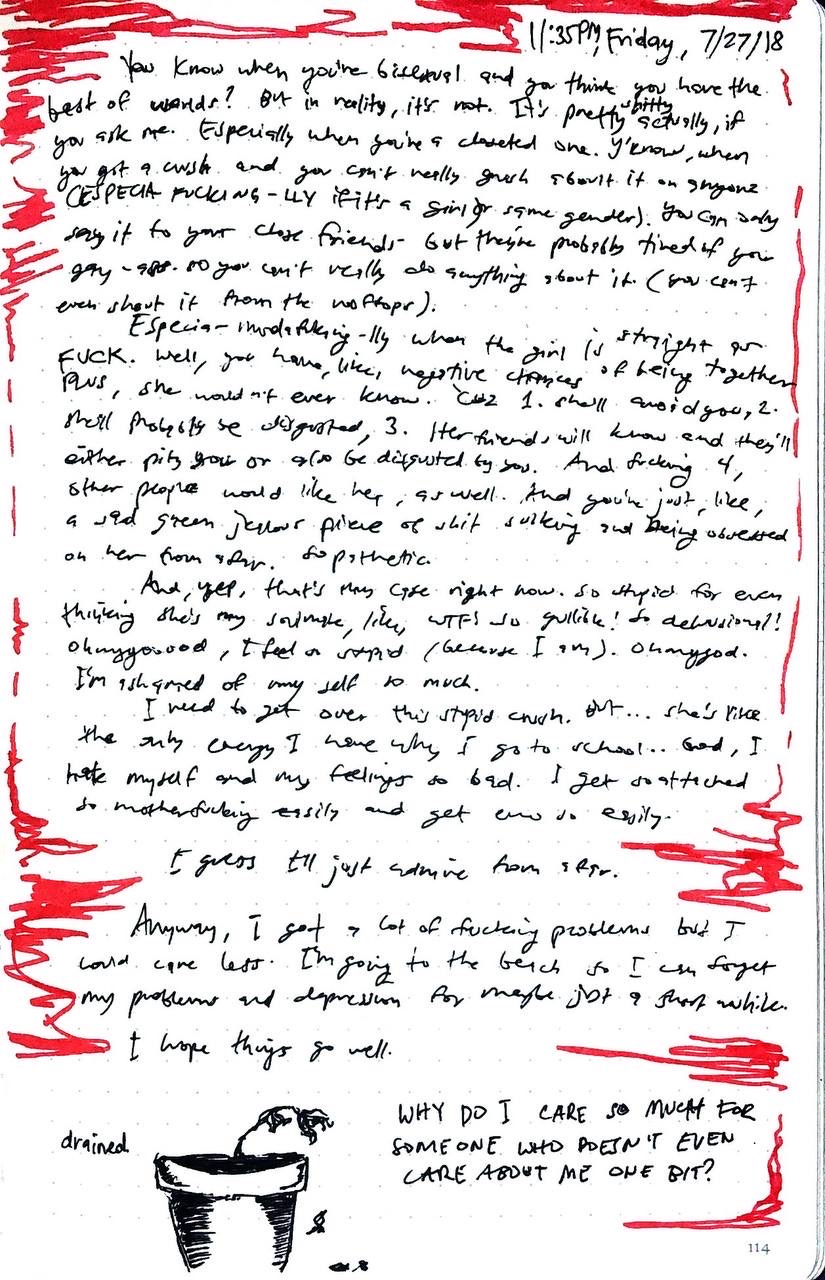 11:35PM, Friday, 7/27/18
You know when you're bisexual and you think you have the
best of worlds? But in reality, it's not. It's pretty shitty actually, if
you ask me. Especially when you're a closeted one. Y'know, when
you got a crush and you can't really gush about it on anyone
(ESPECIA FUCKING-LLY if it's a girl or same gender). You can only
say it to your close friends- but they're probably tired of your
gay-ass. So you can't really do anything about it. (you can't
even shout it from the rooftops).
Especia-muthafucking-lly when the girl is straight as
FUCK. Well, you have, like, negative chances of being together
PLUS, she wouldn't ever know. 'Cuz 1. she'll avoid you, 2.
she'll probably be disgusted, 3. Her friends will know and they'll
either pity you or also be disgusted by you. And fucking 4,
other people would like her, as well. And you're just, like,
a sad green jealous piece of shit sulking and being obsessed
on her from afar. So pathetic.
And, yep, that's my case right now. So stupid for even
thinking she's my soulmate, like, WTF! so gullible! So delusional!
Ohmygooood, I feel so stupid (because I am). Ohmygod.
I'm ashamed of my self so much.
I need to get over this stupid crush. But... she's like
the only energy I have why I go to school.. God, I
hate myself and my feelings so bad. I get so attached
so motherfucking easily and get emo so easily.
I guess I'll just admire from afar.
Anyway, I got a lot of fucking problems but I
could care less. I'm going to the beach so I can forget
my problems and depression for maybe just a short awhile.
I hope things go well.
drained
WHY DO I CARE SO MUCH FOR
SOMEONE WHO DOESN'T EVEN
CARE ABOUT ME ONE BIT?
114